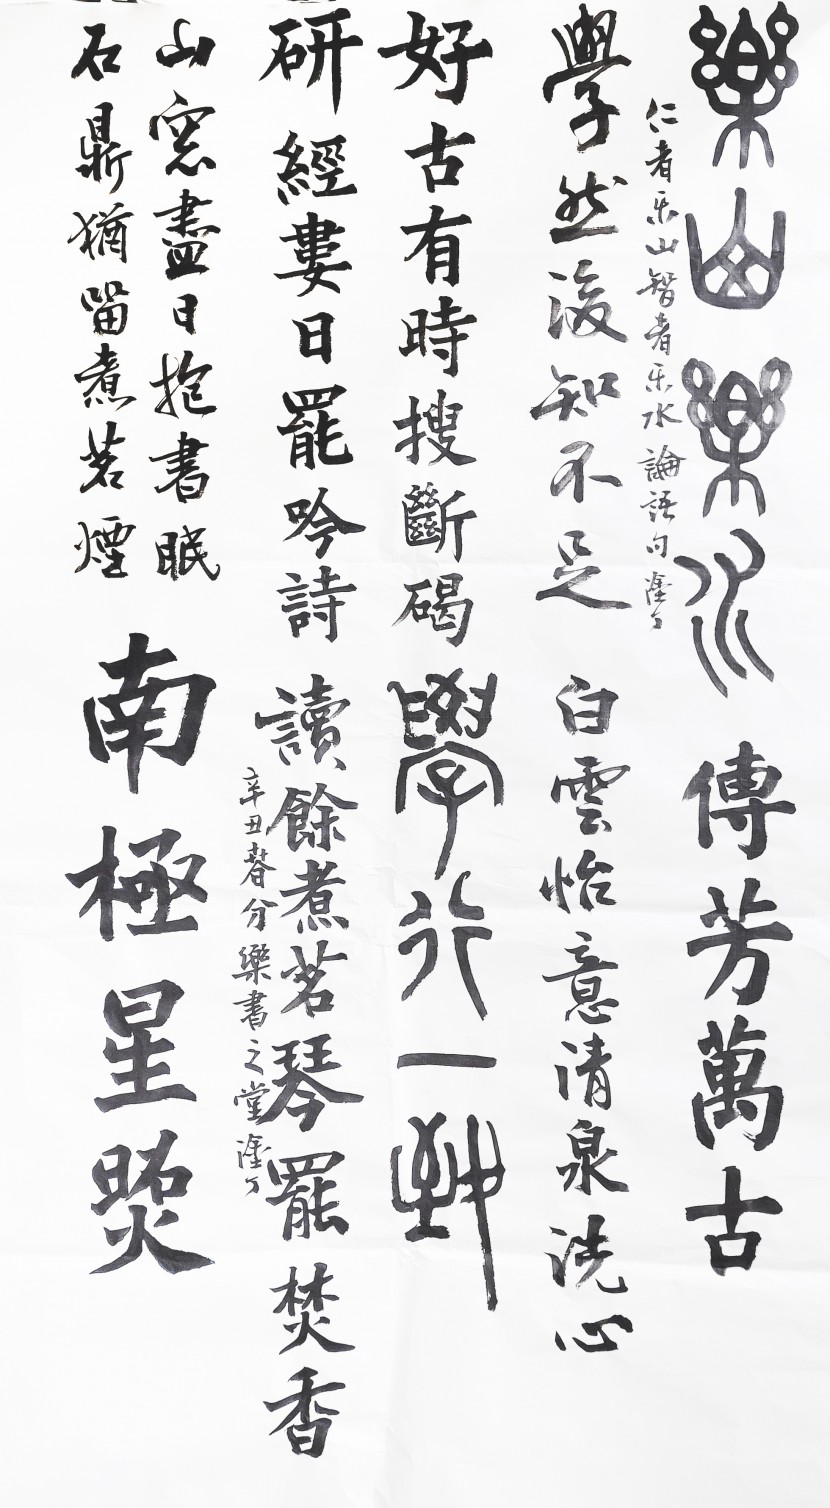 樂山樂水
仁者乐山智者乐水 論語句 塗了
傳芳萬古
學然後知不足
白雲怡意清泉洗心
好古有時搜斷碣
學行一致
研經婁日罷吟詩
讀餘煮茗琴罷焚香
辛丑春分樂書之堂塗了
山窓盡日抱書眠
石鼎猶留煮茗煙
南極星照